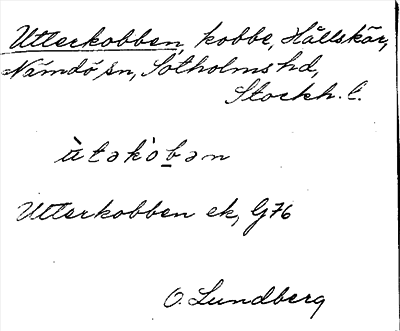 Utterkobben, kobbe, Hållskär,
Nämdö sn, Sotholms hd,
Stockh. l.
ùtəkòbən
Utterkobben ek, G76
O. Lundberg